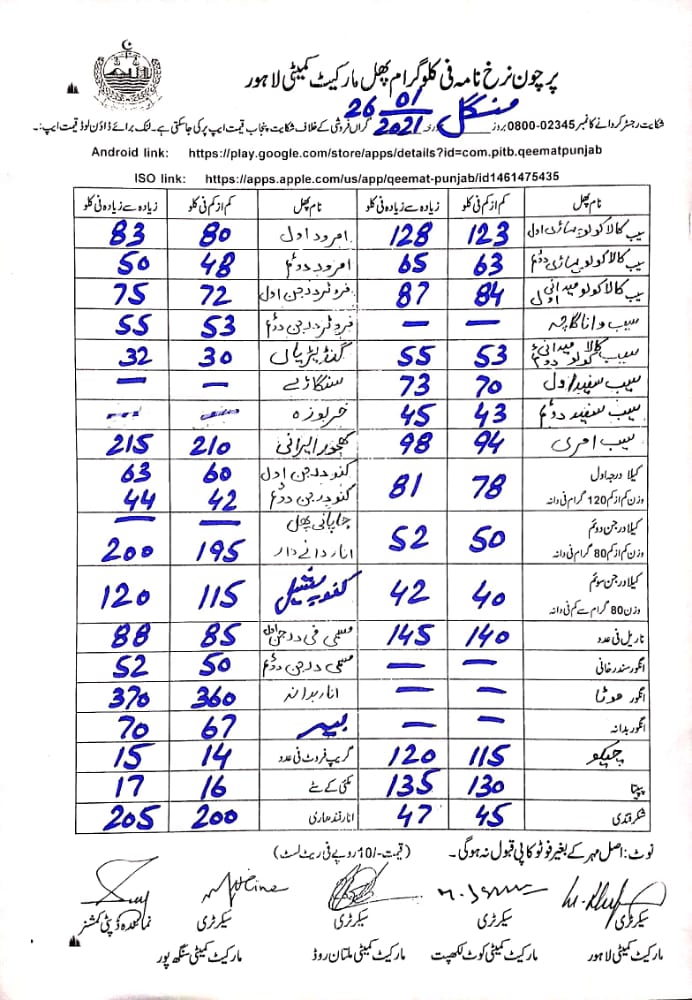 پرچون نرخ نامہ فی کلوگرام پھل مارکیٹ کمیٹی لاہور
شکایت رجسٹر کروانے کا نمبر 02345-0800 بروز منگل مورخہ 26/01/2021 گراں فروشی کے خلاف شکایت پنجاب قیمت ایپ پر کی جا سکتی ہے۔ لنک برائے ڈاؤن لوڈ قیمت ایپ:۔
Android link: https://play.google.com/store/apps/details?id=com.pitb.qeematpunjab
ISO link: https://apps.apple.com/us/app/qeemat-punjab/id1461475435
نام پھل کم از کم فی کلو زیادہ سے زیادہ فی کلو نام پھل کم از کم فی کلو زیادہ سے زیادہ فی کلو
سیب کالا کولو پہاڑی اول 123 128 امرود اول 80 83
سیب کالا کولو پہاڑی دوئم 63 65 امرود دوئم 48 50
سیب کالا کولو میدانی اول 84 87 فروٹر درجن اول 72 75
سیب — — فروٹر درجن دوئم 53 55
سیب کالا کولو میدانی دوئم 53 55 گنڈیریاں 30 32
سیب سفید اول 70 73 سنگاڑے — —
سیب سفید دوئم 43 45 خربوزہ — —
سیب امری 94 98 کھجور ایرانی 210 215
کیلا درجہ اول وزن کم از کم 120 گرام فی دانہ 78 81 کنو درجن اول 60 63
کنو درجن دوئم 42 44
کیلا درجن دوئم وزن کم از کم 80 گرام فی دانہ 50 52 جاپانی پھل — —
انار دانے دار 195 200
کیلا درجن سوئم وزن 80 گرام سے کم فی دانہ 40 42 کنو سپیشل 115 120
ناریل فی عدد 140 145 مسمی فی درجن اول 85 88
انگور سندرخانی — — مسمی درجن دوئم 50 52
انگور موٹا — — انار بدانہ 360 370
انگور بدانہ — — بیر 67 70
چیکو 115 120 گریپ فروٹ فی عدد 14 15
پپیتا 130 135 مکئی کے سٹے 16 17
شکر قندی 45 47 انار قندھاری 200 205
نوٹ: اصل مہر کے بغیر فوٹو کاپی قبول نہ ہوگی۔ (قیمت -/10 روپے فی ریٹ لسٹ)
سیکرٹری سیکرٹری سیکرٹری سیکرٹری نمائندہ ڈپٹی کمشنر
مارکیٹ کمیٹی لاہور مارکیٹ کمیٹی کوٹ لکھپت مارکیٹ کمیٹی ملتان روڈ مارکیٹ کمیٹی سنگھ پور